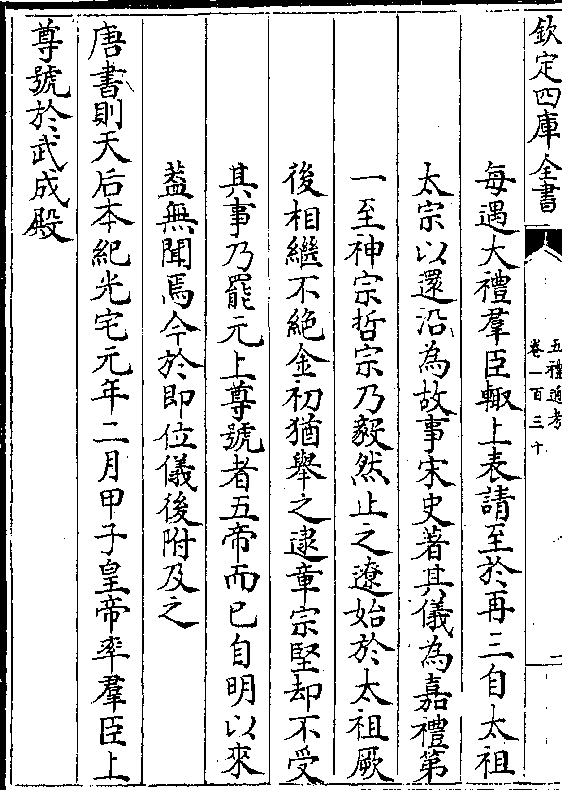 欽定四庫全書
五禮通考
卷一百三十
二
每遇大禮羣臣輙上表請至於再三自太祖
太宗以還沿為故事宋史著其儀為嘉禮第
一至神宗哲宗乃毅然止之遼始於太祖厥
後相繼不絶金初猶舉之逮章宗堅却不受
其事乃罷元上尊號者五帝而已自明以來
葢無聞焉今於即位儀後附及之
唐書則天后本紀光宅元年二月甲子皇帝率羣臣上
尊號於武成殿